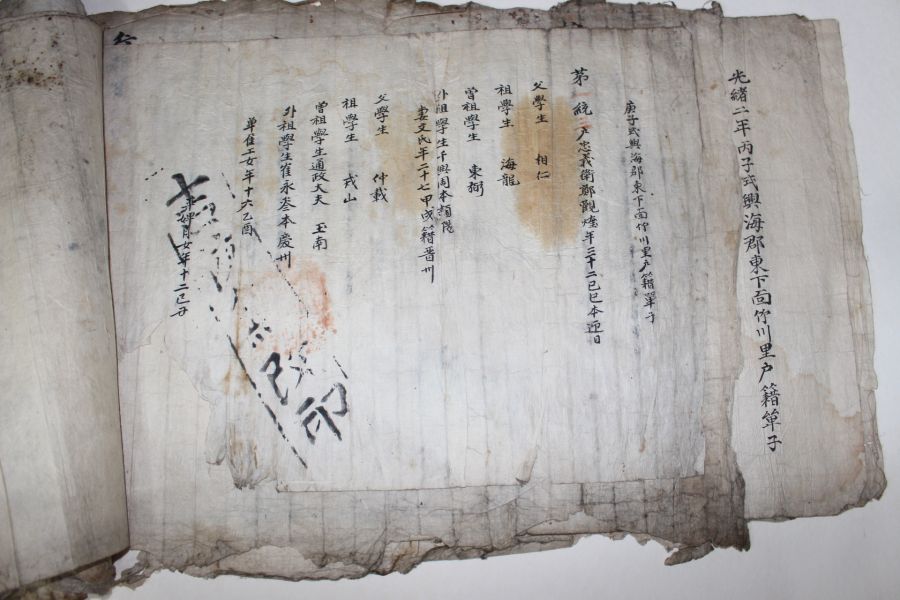 光緖二年丙子式興海郡東下面竹川里戶籍單子
庚子式興海郡東下面竹川里戶籍單子
第一統 戶忠義衛鄭觀 年三十二己巳本迎日
父學生 相仁
祖學生 海龍
曾祖學生 東弼
外祖學生 興周本潁陽
妻文氏年二十七甲戌籍晋州
父學生 仲載
祖學生 山
曾祖學生通政大夫 玉南
外祖學生崔永叁本慶州
單 女年十六乙酉
婢月女年十二